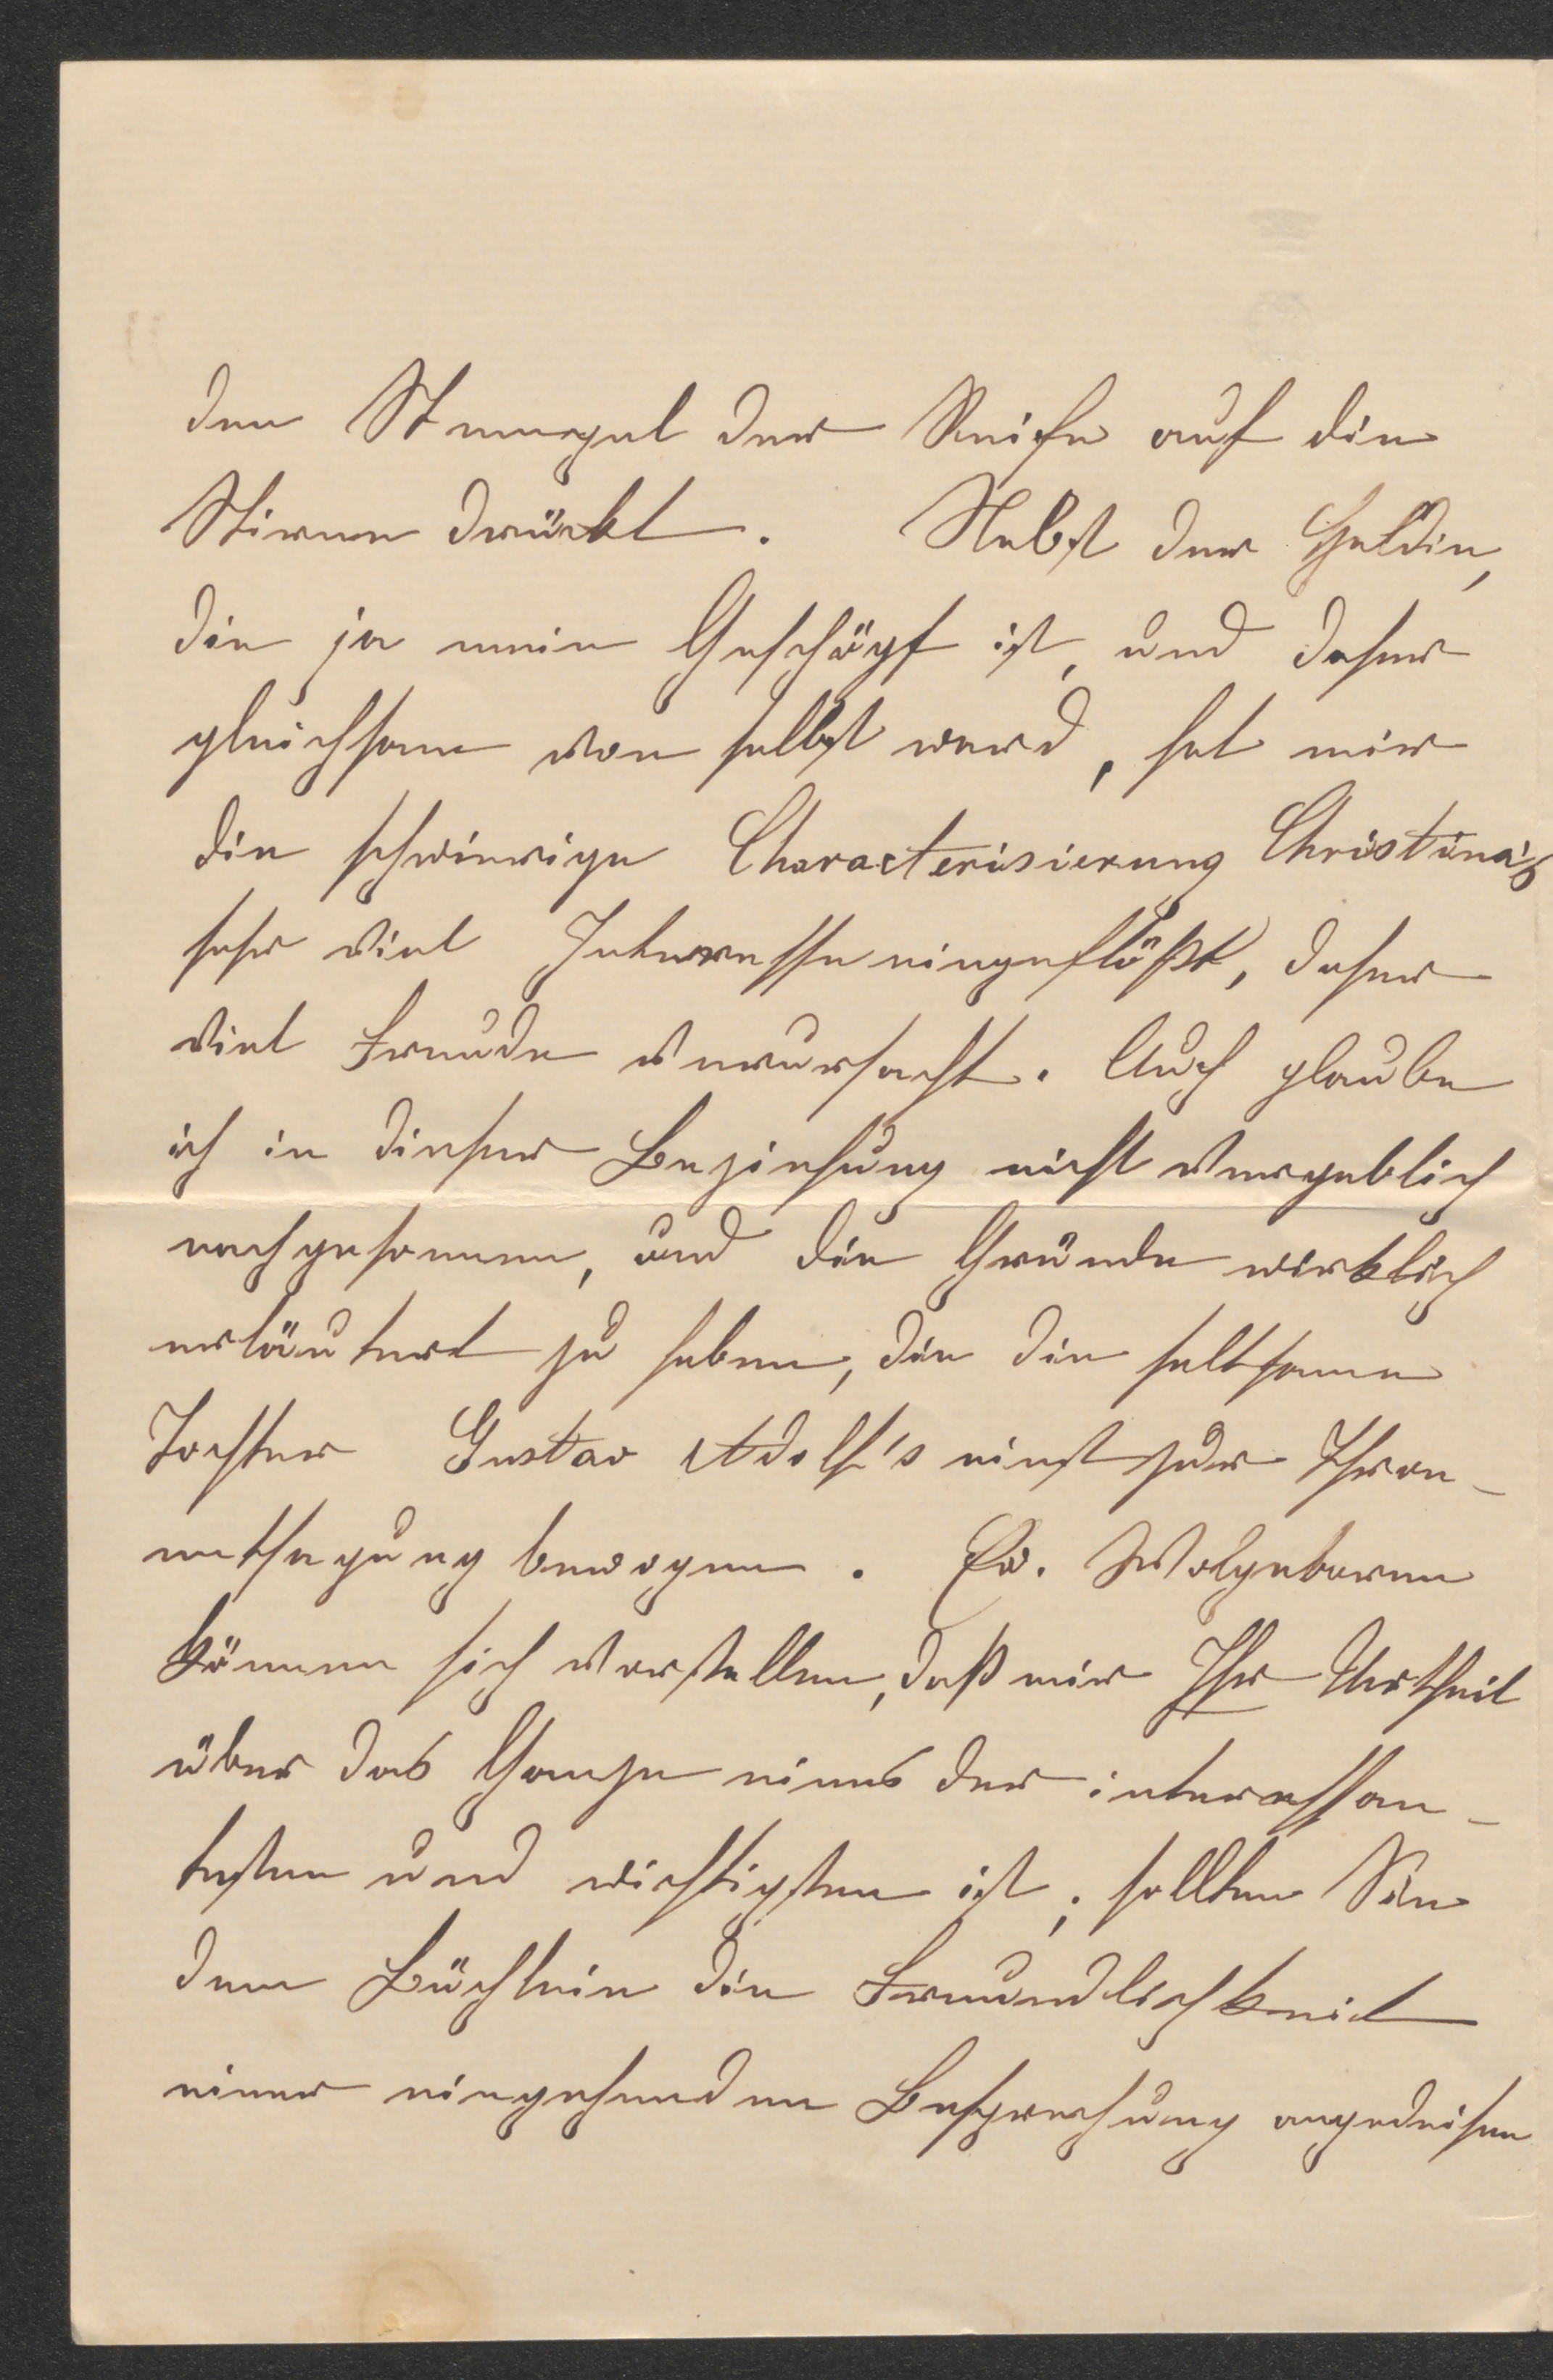 den Stempel der Reife auf die
Stirne drückt. Nebst der Heldin,
die ja mein Geschöpf ist, und daher
gleichsam von selbst ward, hat mir
die schwierige Characterisierung Christina's
sehr viel Interesse eingeflößt, daher
viel Freude verursacht. Auch glaube
ich in dieser Beziehung nicht vergeblich
nachgesonnen, und die Gründe wirklich
erläutert zu haben, die die seltsame
Tochter Gustav Adolf's einst zur Thron-
entsagung bewogen. Ew. Wolgeboren
können sich vorstellen, daß mir Ihr Urtheil
über das Ganze eines der interessan-
testen und wichtigsten ist; sollten Sie
dem Büchlein die Freundlichkeit
einer eingehenden Besprechung angedeihen